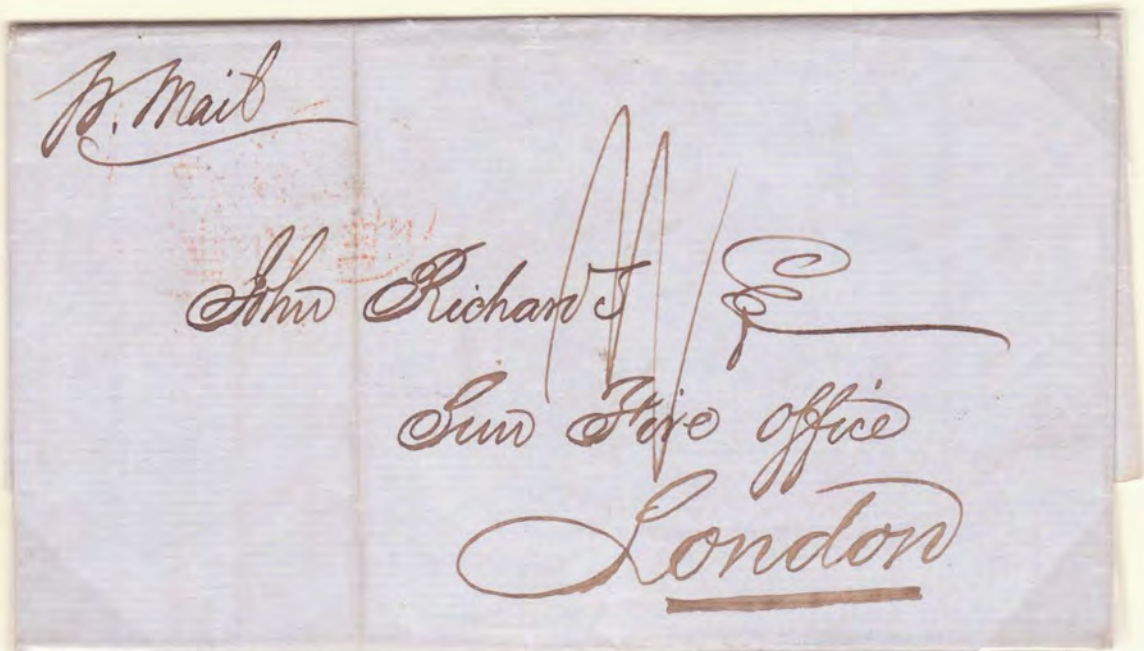 p. Mail
John Richard
Sun Fire Office
London